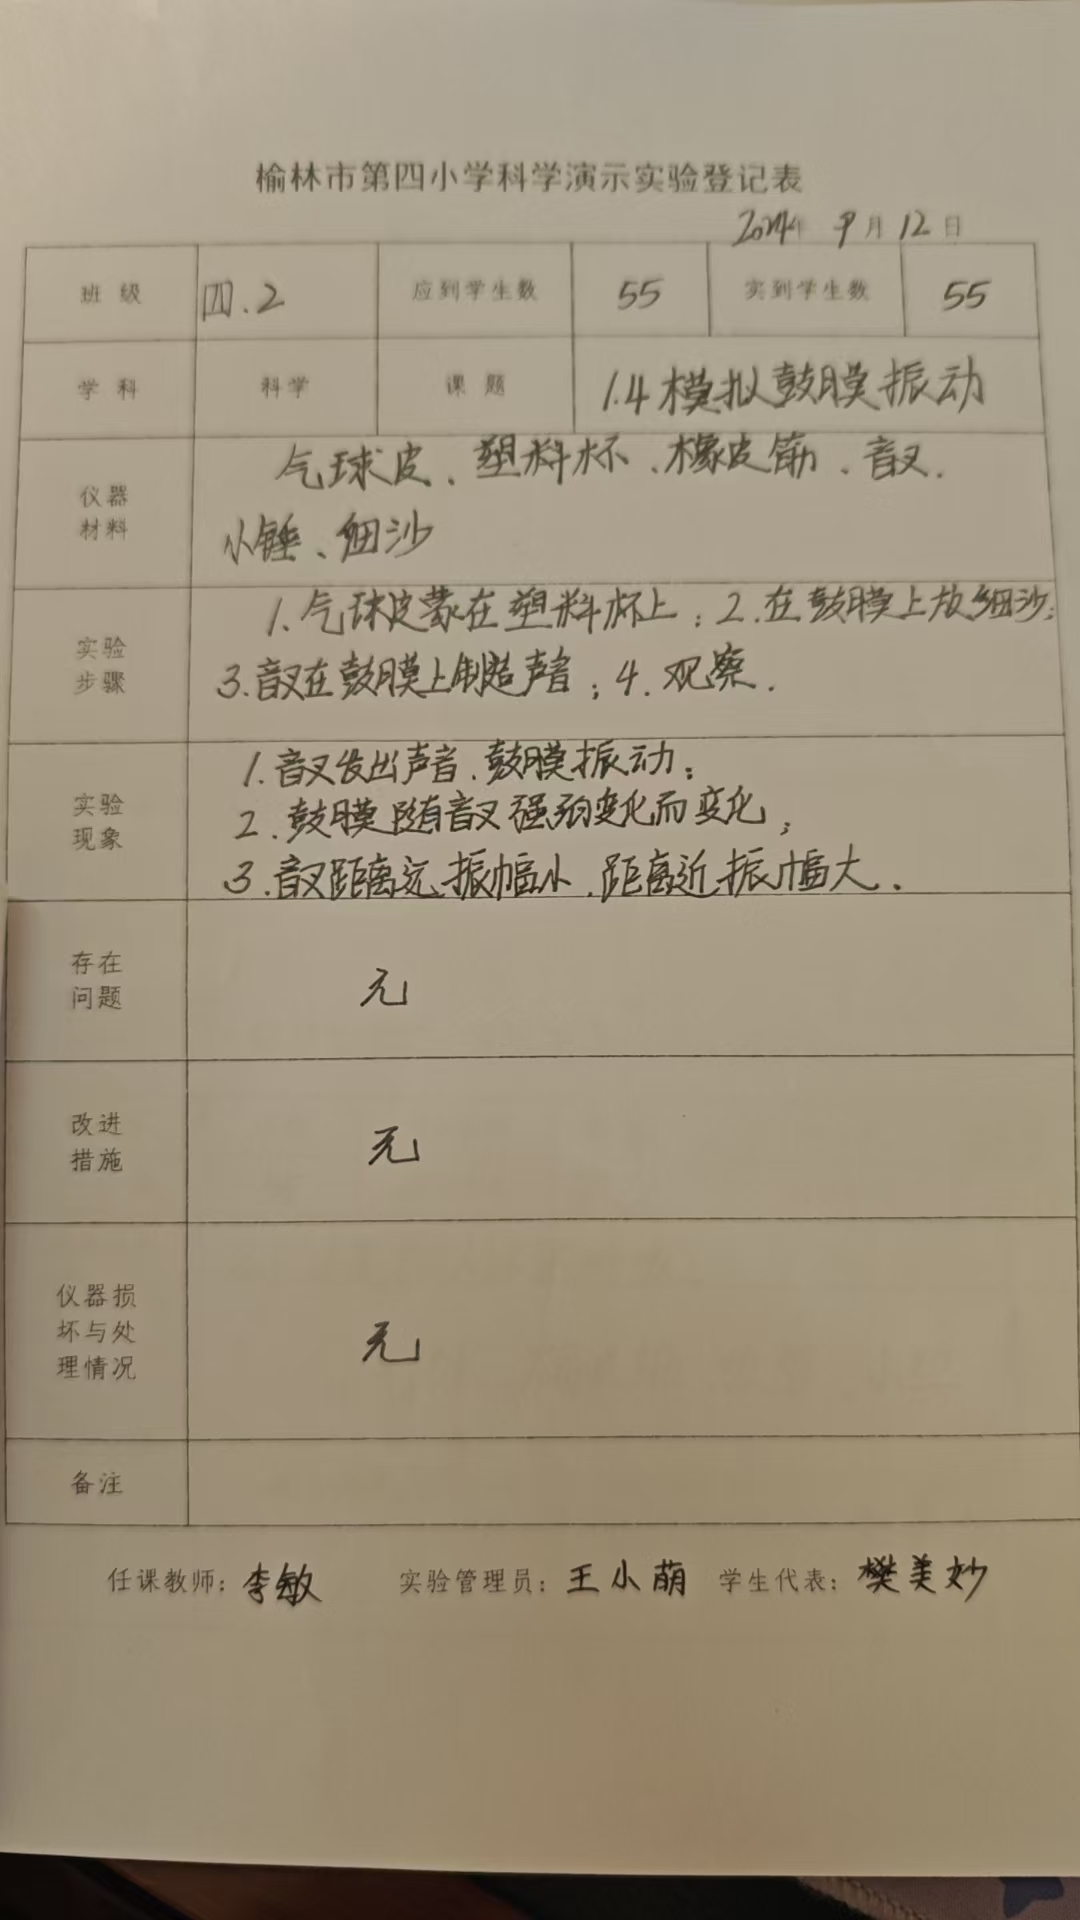 榆林市第四小学科学演示实验登记表
2024年 9月12日
班级 四.2 应到学生数 55 实到学生数 55
学科 科学 课题 1.4模拟鼓膜振动
仪器
材料
气球皮、塑料杯、橡皮筋、音叉.
小锤、细沙
实验
步骤
1.气球皮蒙在塑料杯上;2.在鼓膜上放细沙;
3.音叉在鼓膜上制造声音;4.观察.
实验
现象
1.音叉发出声音.鼓膜振动;
2.鼓膜随音叉强弱变化而变化;
3.音叉距离远振幅小.距离近振幅大.
存在
问题
无
改进
措施
无
仪器损
坏与处
理情况
无
备注
任课教师:李敏 实验管理员:王小萌 学生代表:樊美妙